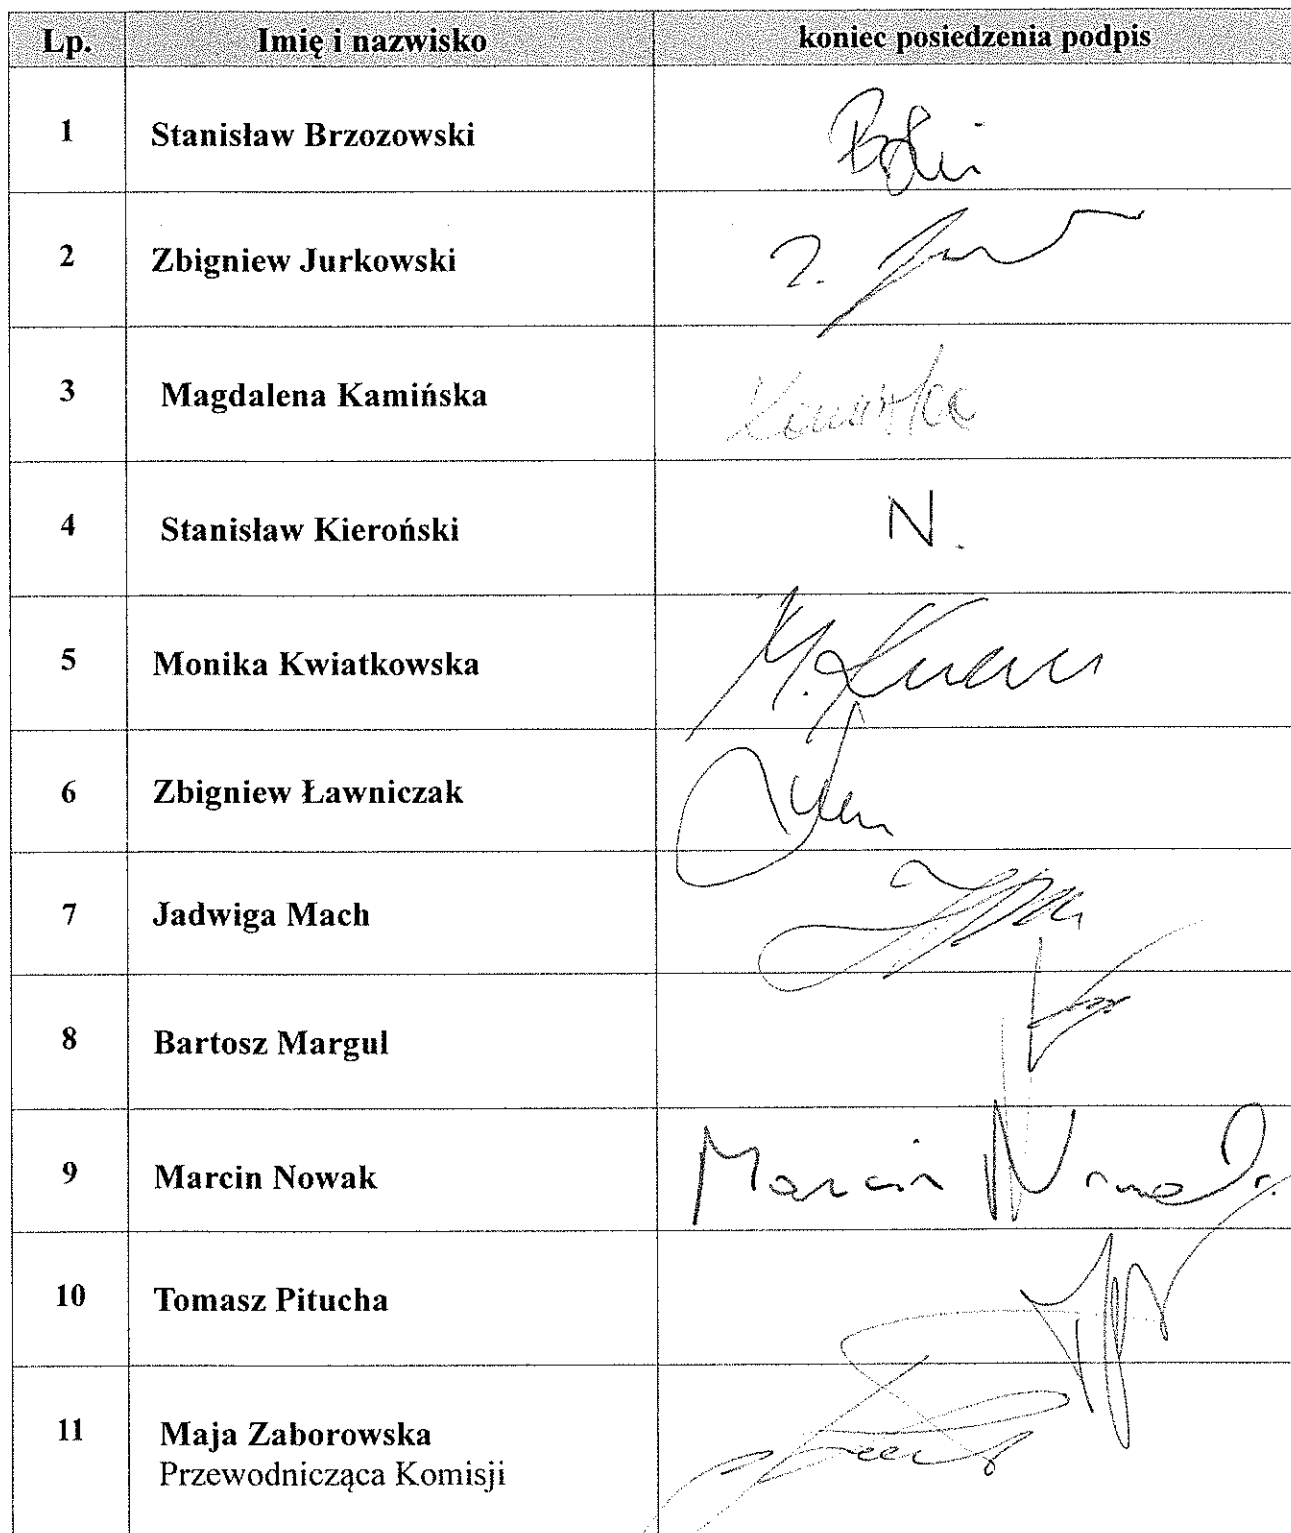 Lp. Imię i nazwisko koniec posiedzenia podpis
1 Stanisław Brzozowski
2 Zbigniew Jurkowski Z.
3 Magdalena Kamińska
4 Stanisław Kieroński N.
5 Monika Kwiatkowska M.
6 Zbigniew Ławniczak
7 Jadwiga Mach
8 Bartosz Margul
9 Marcin Nowak Marcin Nowak
10 Tomasz Pitucha
11 Maja Zaborowska
Przewodnicząca Komisji